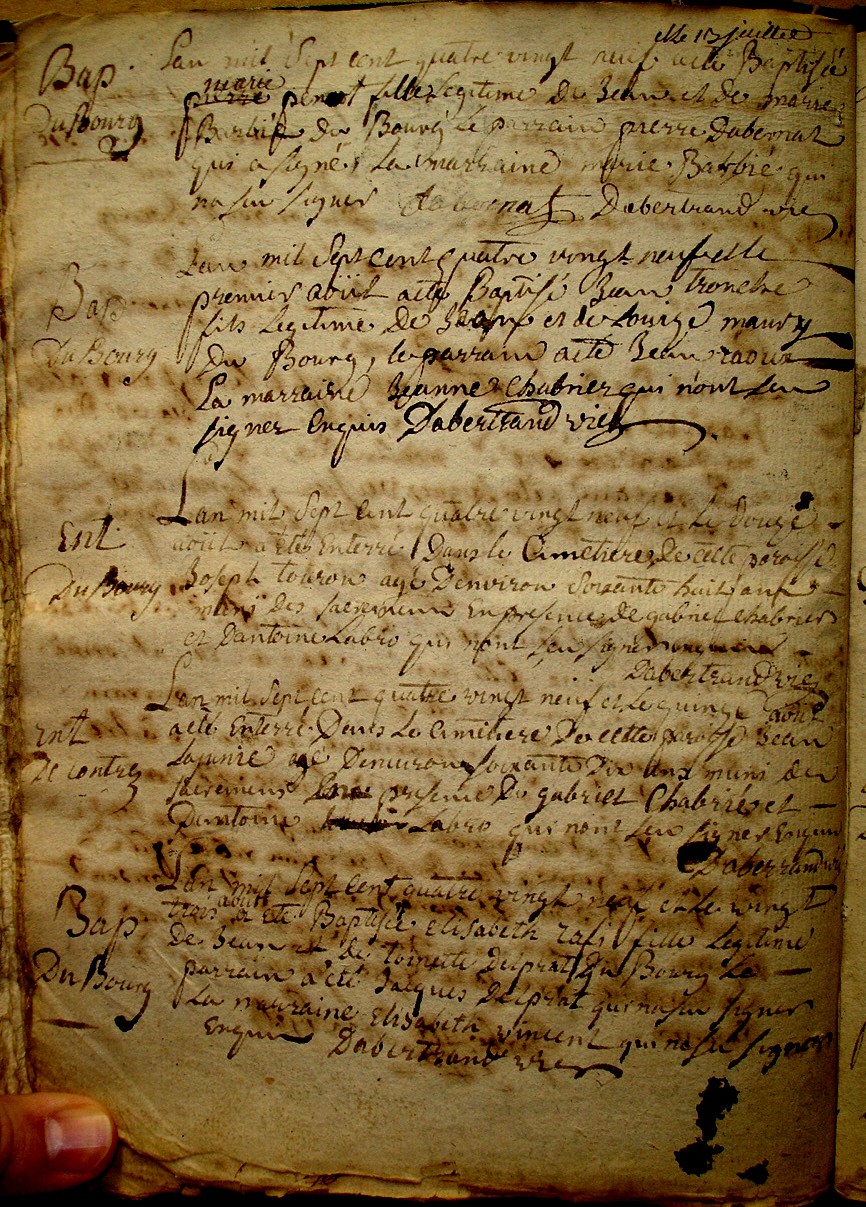 et le 13 juillet
Bap. Lan mil Sept cent quatre vingt neuf a été Baptisée
marie
Du Bourg pierre fille Legitime de Jean et de marie
Barbié du Bourg Le parrain pierre Dabernat
qui a signé, La marraine marie Barbié qui
na su signer Dabernat Dabertrand vic
Lan mil Sept cent quatre vingt neuf et le
Bap premier août a été Baptisé Jean tronche
fils Legitime de Jean et de Louise maury
Du Bourg Du Bourg, le parrain a été Jean
La marraine Jeanne chabrier qui n'ont su
signer Enquis Dabertrand vic
Lan mil Sept cent quatre vingt neuf et Le douze
Ent. août a été Enterré Dans le Cimetiere De cette paroisse
Du Bourg Joseph touron agé D'environ soixante huit ans
muni des sacremens En presence de gabriel chabrier
et Dantoine Labro qui n'ont su signer
Dabertrand vic
Lan mil Sept cent quatre vingt neuf et le quinze août
Ent a été Enterré Dans Le Cimetiere De cette paroisse Jean
De Lajunie agé Denviron soixante Dix ans muni des
sacremens presence De gabriel Chabrié et
Dantoine Labro qui n'ont su signer Enquis
Dabertrand vic
Lan mil Sept cent quatre vingt neuf et Le vingt
août
Bap. trois a été Baptisée elisabeth fille Legitime
De Jean et de toinette Delprat Du Bourg Le
Du Bourg parrain a été Jacques Delprat qui na su signer
La marraine Elisabeth vincent qui na su signer
Enquis Dabertrand vic